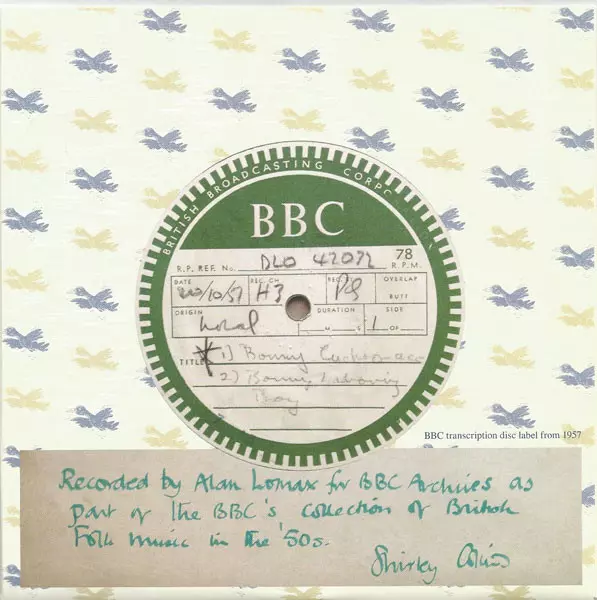 BRITISH BROADCASTING CORPO
BBC
R.P. REF. No. DLO 42072 78 R.P.M.
DATE REC. CH OVERLAP
20/10/57 H3 BUTT
ORIGIN DURATION SIDE
Local M S 1 OF
TITLE * 1) Bonny
2) Bonny Labouring
Boy
BBC transcription disc label from 1957
Recorded by Alan Lomax for BBC Archives as
part of the BBC's collection of British
Folk music in the '50s.
Shirley Collins